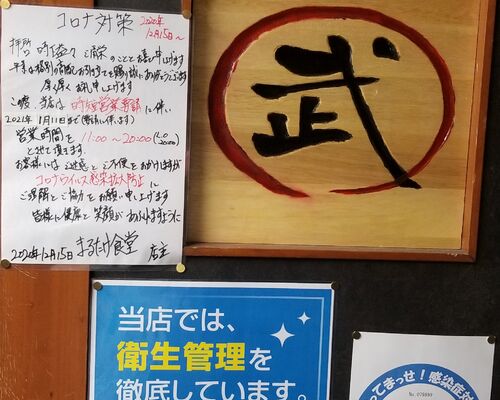 コロナ対策 2020年
12月15日〜
拝啓 時下益々ご清栄のこととお喜び申し上げます
平素は格別の高配お引き立てを賜り誠にありがとうございます
厚く厚く お礼申し上げます
この度、当店は 時短営業要請 に伴い
2021年1月11日まで
営業時間を 11:00〜20:00 (L.O
20:00)
とさせて頂きます
お客様にはご迷惑とご不便をおかけしますが
コロナウイルス感染拡大防止に
ご理解とご協力をお願い申し上げます
皆様に健康と笑顔があふれますように
2020年12月15日 まるたけ食堂 店主
武
当店では、
衛生管理を
徹底しています。
ってまっせ！感染症対
No. 079899